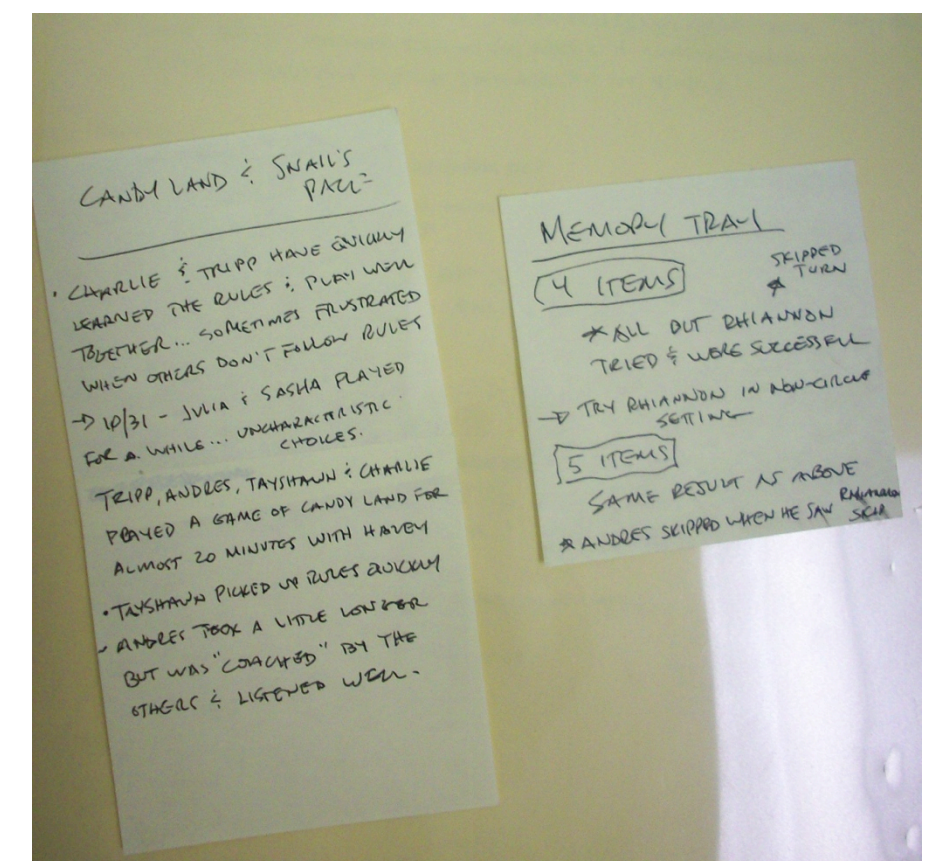 CANDY LAND & SNAIL'S
PACE
• CHARLIE & TRIPP HAVE QUICKLY
LEARNED THE RULES & PLAY WELL
TOGETHER... SOMETIMES FRUSTRATED
WHEN OTHERS DON'T FOLLOW RULES
→ 10/31 - JULIA & SASHA PLAYED
FOR A WHILE... UNCHARACTERISTIC
CHOICES.
TRIPP, ANDRES, TAYSHAWN & CHARLIE
PLAYED A GAME OF CANDY LAND FOR
ALMOST 20 MINUTES WITH
• TAYSHAWN PICKED UP RULES QUICKLY
- ANDRES TOOK A LITTLE LONGER
BUT WAS "COACHED" BY THE
OTHERS & LISTENED WELL.
MEMORY TRAY
4 ITEMS
SKIPPED
TURN
* ALL BUT RHIANNON
TRIED & WERE SUCCESSFUL
→ TRY RHIANNON IN NON-CIRCLE
SETTING
5 ITEMS
SAME RESULT AS ABOVE
* ANDRES SKIPPED WHEN HE SAW RHIANNON
SKIP